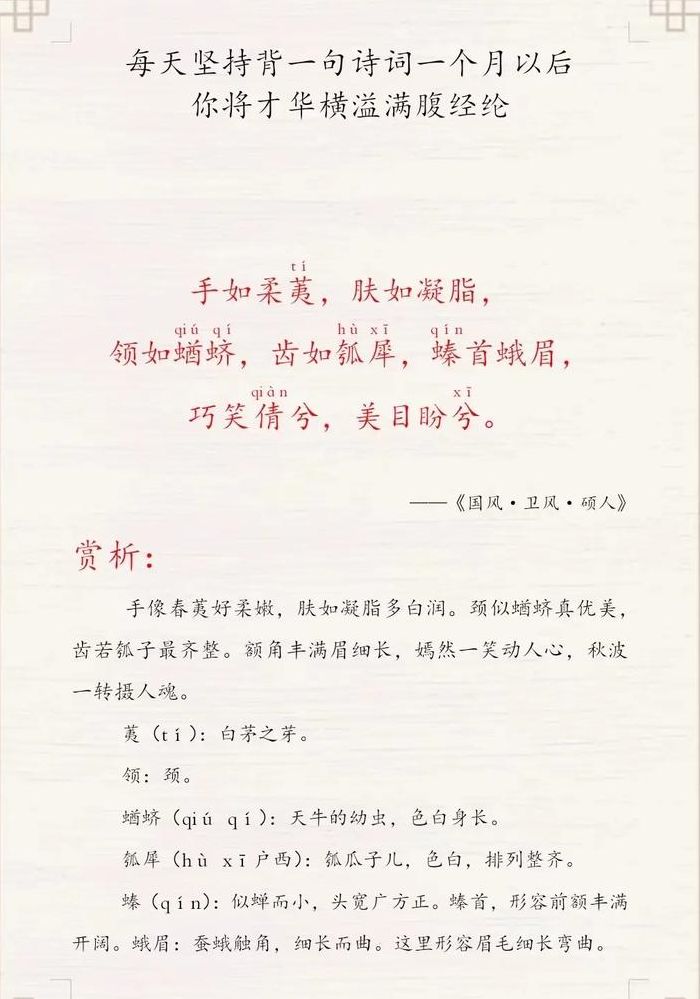 每天坚持背一句诗词一个月以后
你将才华横溢满腹经纶
tí
手如柔荑，肤如凝脂，
qiú qí hù xī qín
领如蝤蛴，齿如瓠犀，螓首蛾眉，
qiàn xī
巧笑倩兮，美目盼兮。
——《国风·卫风·硕人》
赏析：
手像春荑好柔嫩，肤如凝脂多白润。颈似蝤蛴真优美，
齿若瓠子最齐整。额角丰满眉细长，嫣然一笑动人心，秋波
一转摄人魂。
荑（tí）：白茅之芽。
领：颈。
蝤蛴（qiú qí）：天牛的幼虫，色白身长。
瓠犀（hù xī户西）：瓠瓜子儿，色白，排列整齐。
螓（qín）：似蝉而小，头宽广方正。螓首，形容前额丰满
开阔。蛾眉：蚕蛾触角，细长而曲。这里形容眉毛细长弯曲。